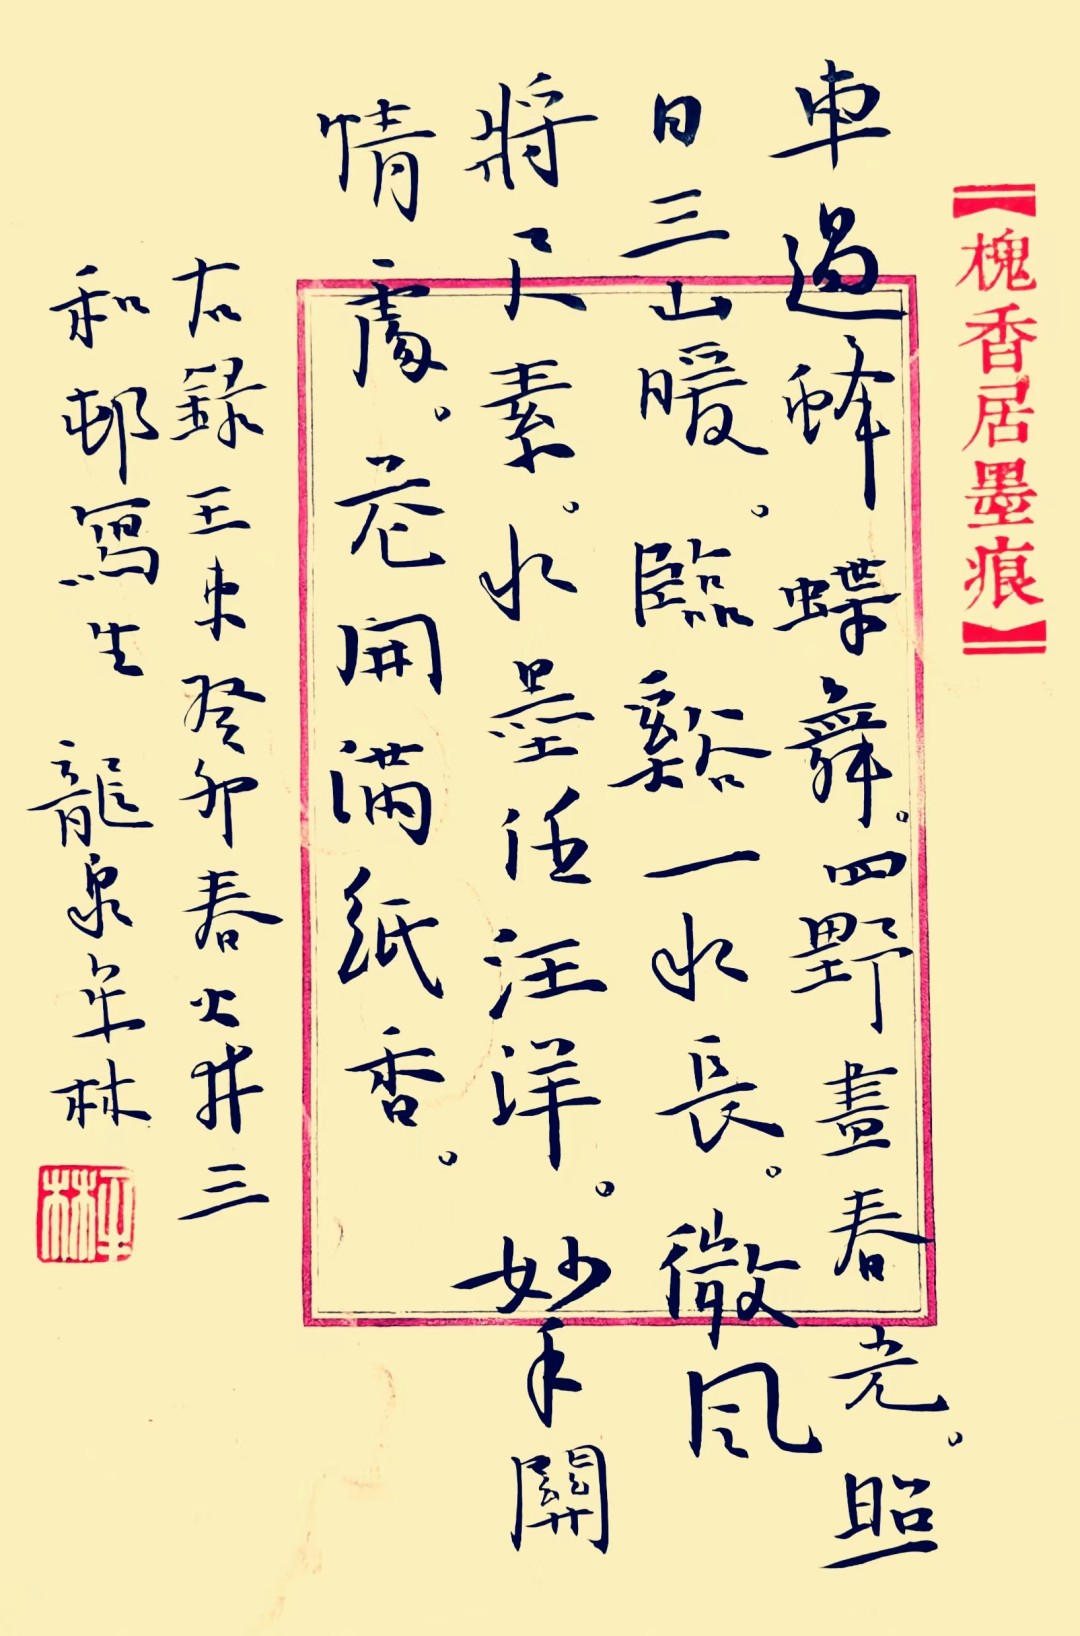 【槐香居墨痕】
車過蜂蝶舞。四野畫春光。照
日三山暖。臨谿一水長。微風
將尺素。水墨任汪洋。妙手關
情處。花開满紙香。
右錄王東癸卯春火井三
和邨寫生 龍泉牟林